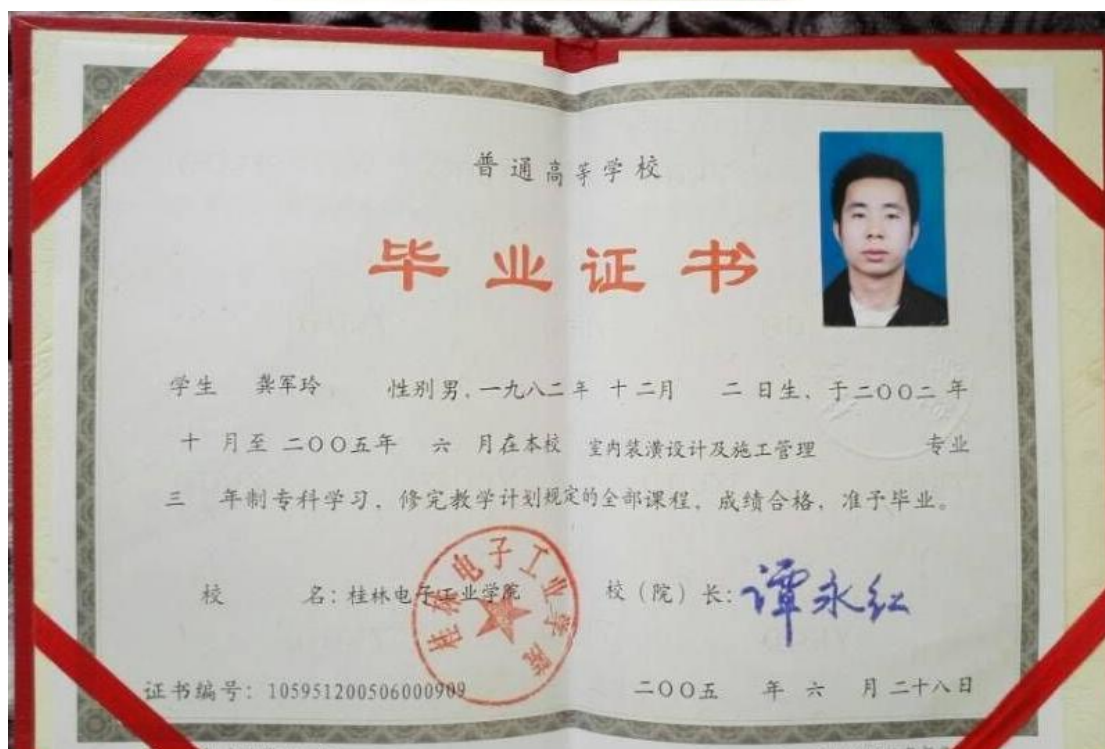 普通高等学校
毕业证书
学生 龚军玲 性别男,一九八二年 十二月 二 日生,于二〇〇二年
十 月至 二〇〇五年 六 月在本校 室内装潢设计及施工管理 专业
三 年制专科学习,修完教学计划规定的全部课程,成绩合格,准予毕业。
校 名:桂林电子工业学院 校(院)长:谭永红
桂林电子工业学院
证书编号:105951200506000909 二〇〇五 年 六 月 二十八日